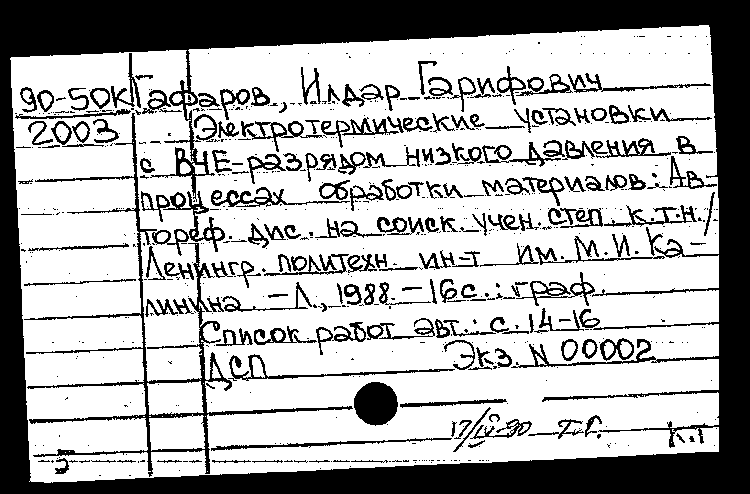 90-50К Гафаров, Илдар Гарифович
2003 Электротермические установки
с ВЧЕ-разрядом низкого давления в
процессах обработки материалов: Ав-
тореф. дис. на соиск. учен. степ. к.т.н./
Ленингр. политехн. ин-т им. М.И. Ка-
линина. - Л., 1988. - 16с.: граф.
Список работ авт.: с. 14-16
ДСП Экз. N 00002
17/IV-90 Т.Г.
К.Т
5